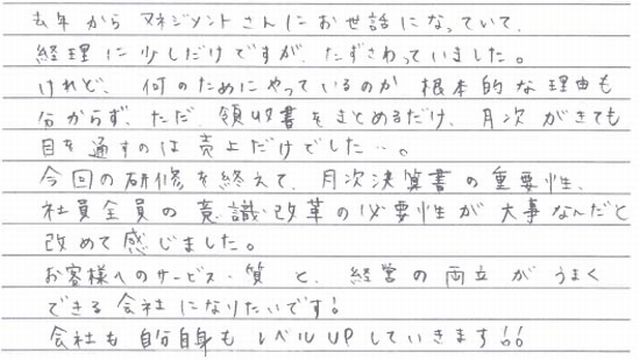 去年から マネジメントさんにお世話になっていて、
経理に少しだけですが、たずさわっていました。
けれど、何のためにやっているのか 根本的な理由も
分からず、ただ、領収書をまとめるだけ、月次がきても
目を通すのは売上だけでした…。
今回の研修を終えて、月次決算書の重要性、
社員全員の意識改革の必要性が大事なんだと
改めて感じました。
お客様へのサービス・質と、経営の両立がうまく
できる会社になりたいです!
会社も自分自身もレベルUPしていきます!!